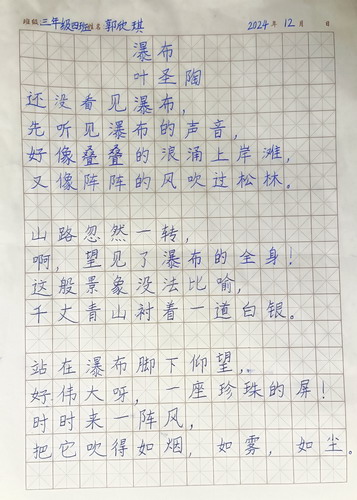 班级 三年级四班 姓名 郭欣琪 2024年12月 日
瀑布
叶圣陶
还没看见瀑布,
先听见瀑布的声音,
好像叠叠的浪涌上岸滩,
又像阵阵的风吹过松林。
山路忽然一转,
啊,望见了瀑布的全身!
这般景象没法比喻,
千丈青山衬着一道白银。
站在瀑布脚下仰望,
好伟大呀,一座珍珠的屏!
时时来一阵风,
把它吹得如烟,如雾,如尘。